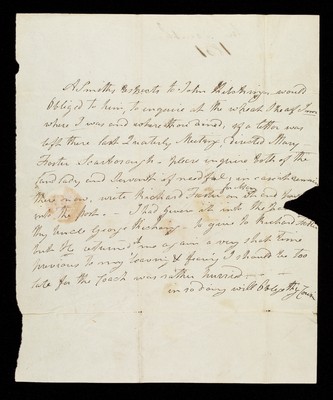 A Smiths respects to John would
obliged to him, to enquire at the Wheat Sheaf Inn
where I was and where thou dined, if a letter was
left there last Quarterly Meeting, directed Mary
Foster Scarborough - please enquire both of the
Landlady and Servants if needful; in case it remains
there now, write Richard
not the Post - I had given it into the
thy uncle George to give to Richard
but He return'd it me again a very short time
previous to my leaving & fearing I should be too
late for the Coach was rather hurried -
in so doing will Oblige thy